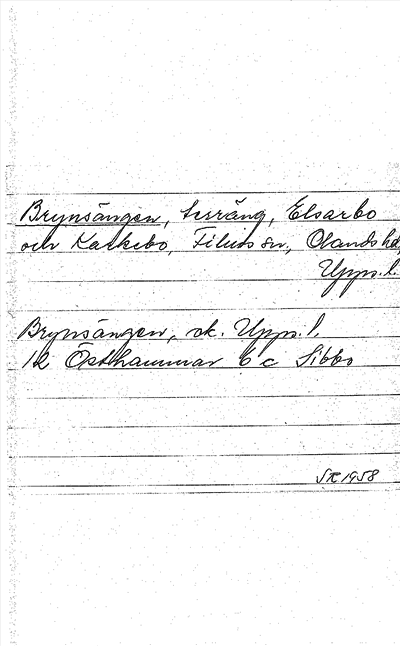 Brynsängen, terräng, Elsarbo
och Kaskebo, Films sn., Olands hd,
Upps. l.
Brynsängen, ek. Upps. l.
12 Östhammar 6 c Sibbo
SR 1958